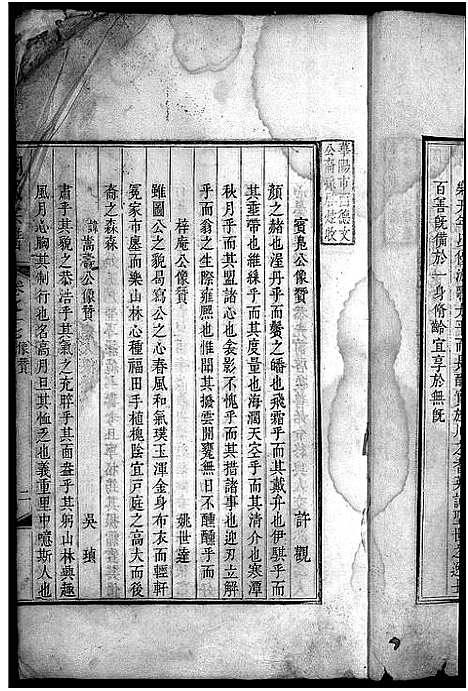 百善既備於一身脩齡宜享於無旣
賓㫤公像贊
許觀
顏之赭也渥丹乎而鬢之皤也飛霜乎而其戴弁也伊騏乎而
其垂帶也維絲乎而其度量也海濶天空乎而其清介也寒潭
秋月乎而其盟諸心也衾影不愧乎而其措諸事也迎刃立解
乎而翁之生際雍熙也惟聞其撥雲開甕無日不醺醺乎而
梓庵公像贊
姚世達
雖圖公之貌曷寫公之心春風和氣璞玉渾金身布衣而輕軒
冕家市廛而樂山林心種福田手植槐陰宜戸庭之高大而後
裔之森森
諱嵩公像贊
吳瑱
肅乎其貌之恭浩乎其氣之充睟乎其面盎乎其躬山林興趣
風月心胸其制行也名高月旦其恤乏也義重里中噫斯人也
像贊